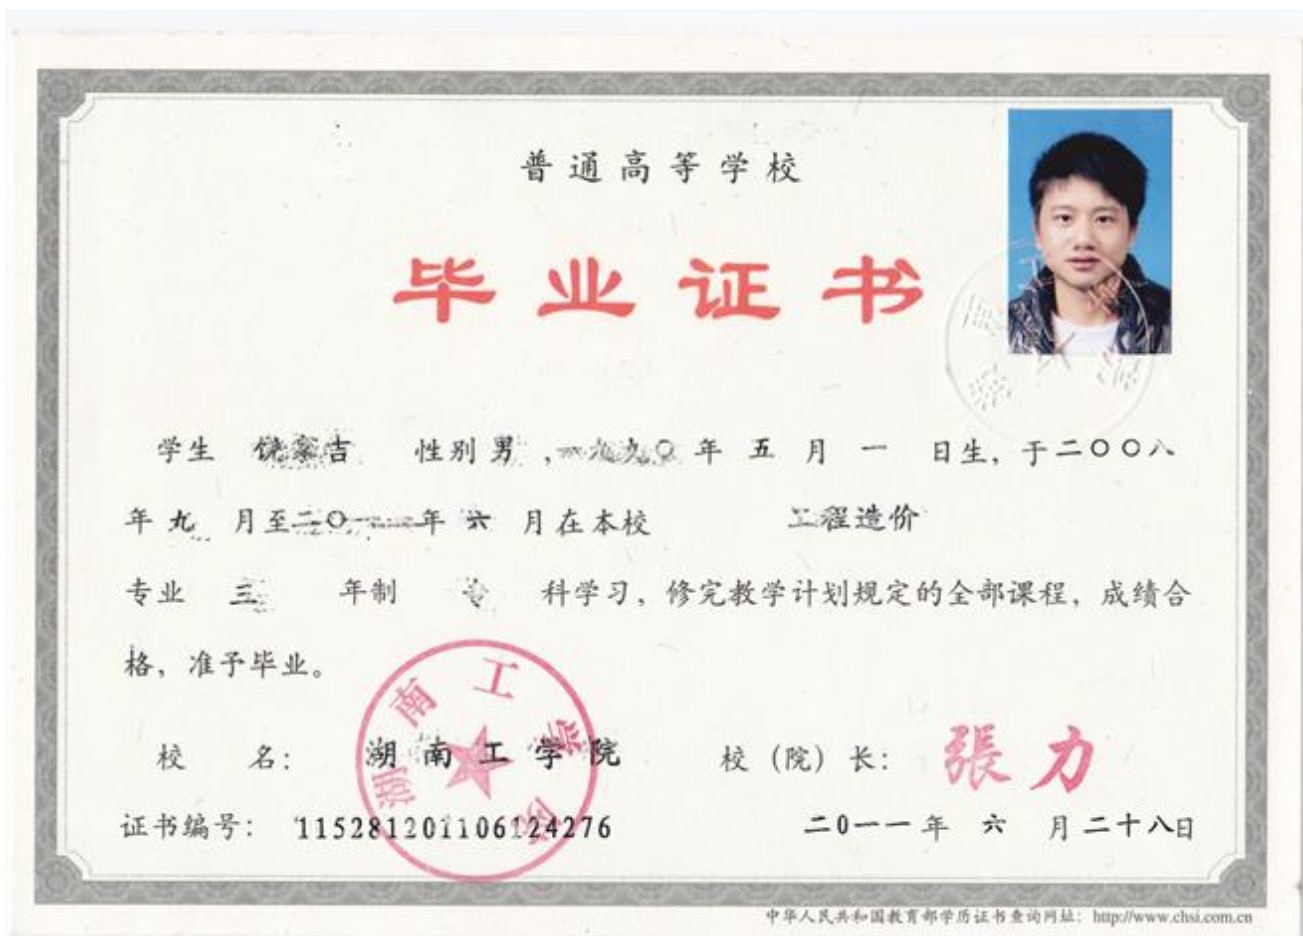 普通高等学校
毕业证书
学生 饶家吉 性别 男，一九九〇年 五 月 一 日生，于二〇〇八
年 九 月至二〇一一年 六 月在本校 工程造价
专业 三 年制 专 科学习，修完教学计划规定的全部课程，成绩合
格，准予毕业。
校 名： 湖南工学院 校（院）长： 張力
湖南工学院
证书编号： 115281201106124276 二〇一一年 六 月二十八日
中华人民共和国教育部学历证书查询网址：http://www.chsi.com.cn